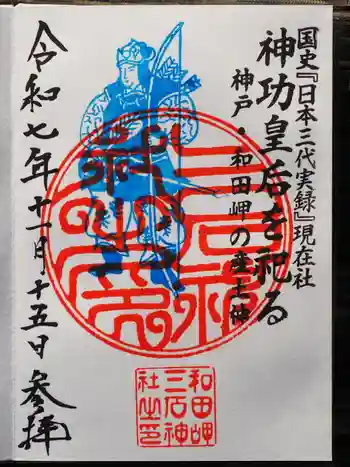 国史『日本三代実録』現在社
神功皇后を祀る
神戸・和田岬の産土神
三石神社
令和七年十一月十五日 参拝
和田岬
三石神
社之印